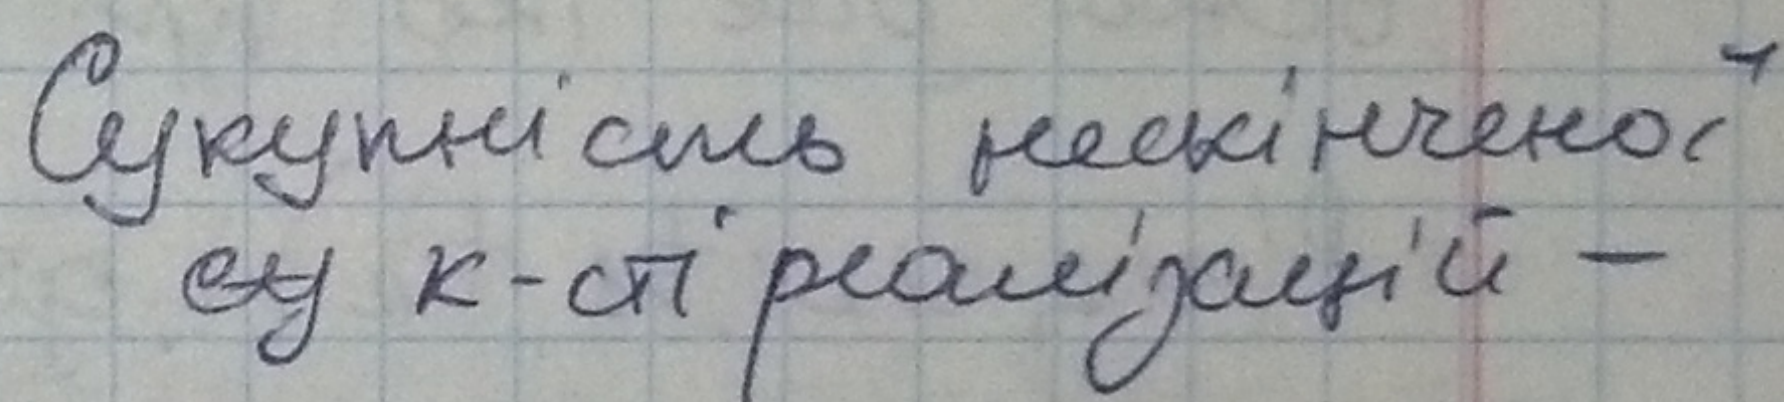 Сукупність нескінченої
к-сті реалізацій –